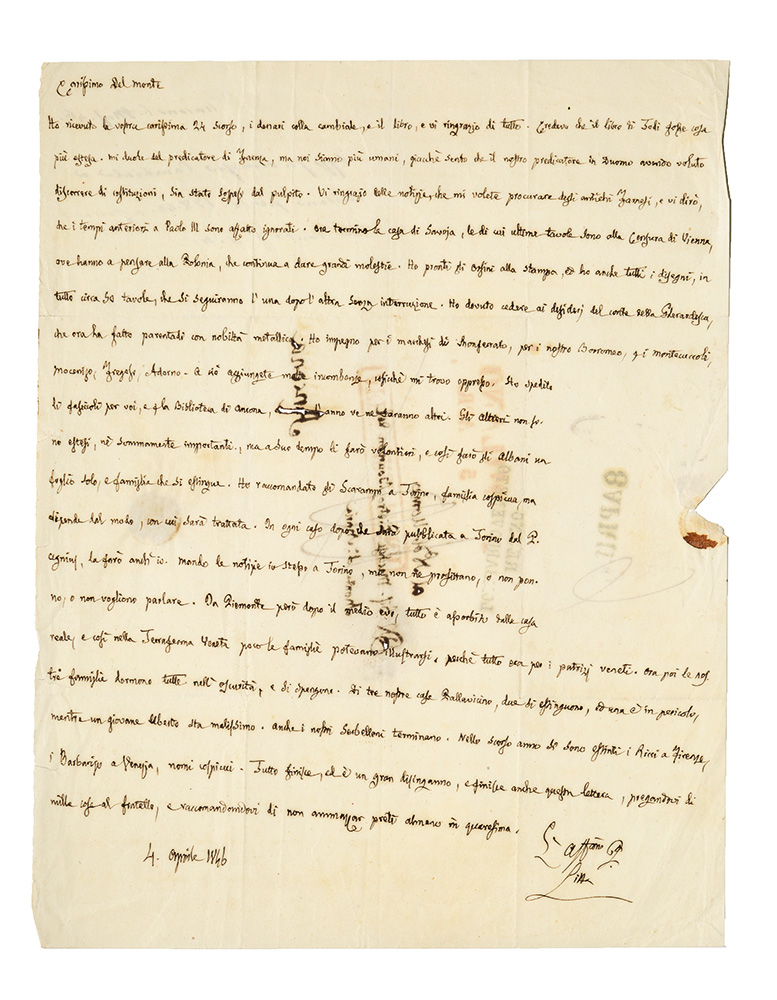 Carissimo Del monte
Ho ricevuto la vostra carissima 24 scorso, i denari colla cambiale, e il libro, e vi ringrazio di tutto. Credevo che il libro di Todi fosse cosa
più estesa. mi duole del predicatore di Faenza, ma noi siamo più umani, giacchè sento che il nostro predicatore in Duomo avendo voluto
discorrere di costituzioni, sia stato sospeso dal pulpito. Vi ringrazio delle notizie, che mi volete procurare degli antichi Farnesi, e vi dirò,
che i tempi anteriori a Paolo III sono affatto ignorati. Ora termino la casa di Savoja, le di cui ultime tavole sono alla Censura di Vienna,
ove hanno a pensare alla Polonia, che continua a dare grandi molestie. Ho pronti gli Orsini alla stampa, ed ho anche tutti i disegni, in
tutto circa 50 tavole, che si seguiranno l'una dopo l'altra senza interruzione. Ho dovuto cedere ai desiderj del conte della Gherardesca,
che ora ha fatto parentadi con nobiltà metallica. Ho impegno per i marchesi di Monferrato, per i nostro Borromeo, i Montecuccoli,
Mocenigo, Fregoso, Adorno. A ciò aggiungete molte incombenze, cosichè mi trovo oppresso. Ho spedito
di fascicoli per voi, e la Biblioteca di Ancona, l'anno ve ne saranno altri. Gli Altieri non so-
no estesi, nè sommamente importanti, ma a suo tempo li farò volontieri, e così farò gli Albani un
foglio solo, e famiglia che si estingue. Ho raccomandato gli Scarampi a Torino, famiglia cospicua, ma
dipende dal modo, con cui sarà trattata. In ogni caso dopo che sarà pubblicata a Torino dal
la farò anch'io. mando le notizie io stesso a Torino, ma non ne profittano, o non pon-
no, o non vogliono parlare. In Piemonte però dopo il medio evo, tutto è assorbito dalla casa
reale, e così nella Terraferma Veneta poco le famiglie potevano illustrarsi, perchè tutto era per i patrizj veneti. Ora poi le nos
tre famiglie dormono tutte nell'oscurità, e si spengono. Di tre nostre case Pallavicino, due si estinguono, ed una è in pericolo,
mentre un giovane Uberto sta malissimo. anche i nostri Serbelloni terminano. Nello scorso anno si sono estinti i Ricci a Firenze,
i Barbarigo a Venezia, nomi cospicui. Tutto finisce, ed è un gran disinganno, e finisce anche questa lettera, pregandovi di
mille cose al fratello, e raccomandandovi di non ammazzar preti almeno in quaresima.
4. Aprile 1846
L'affmo
Litta
8 APRILE